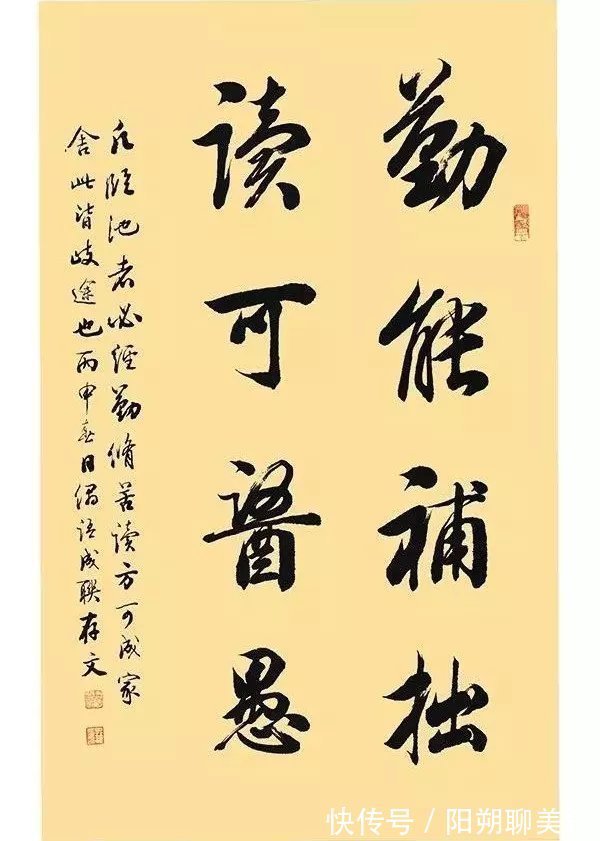 勤能補拙
读可醫愚
凡临池者必经勤脩苦读方可成家
舍此皆歧途也丙申春日偶语成联存文
快传号 / 阳朔聊美